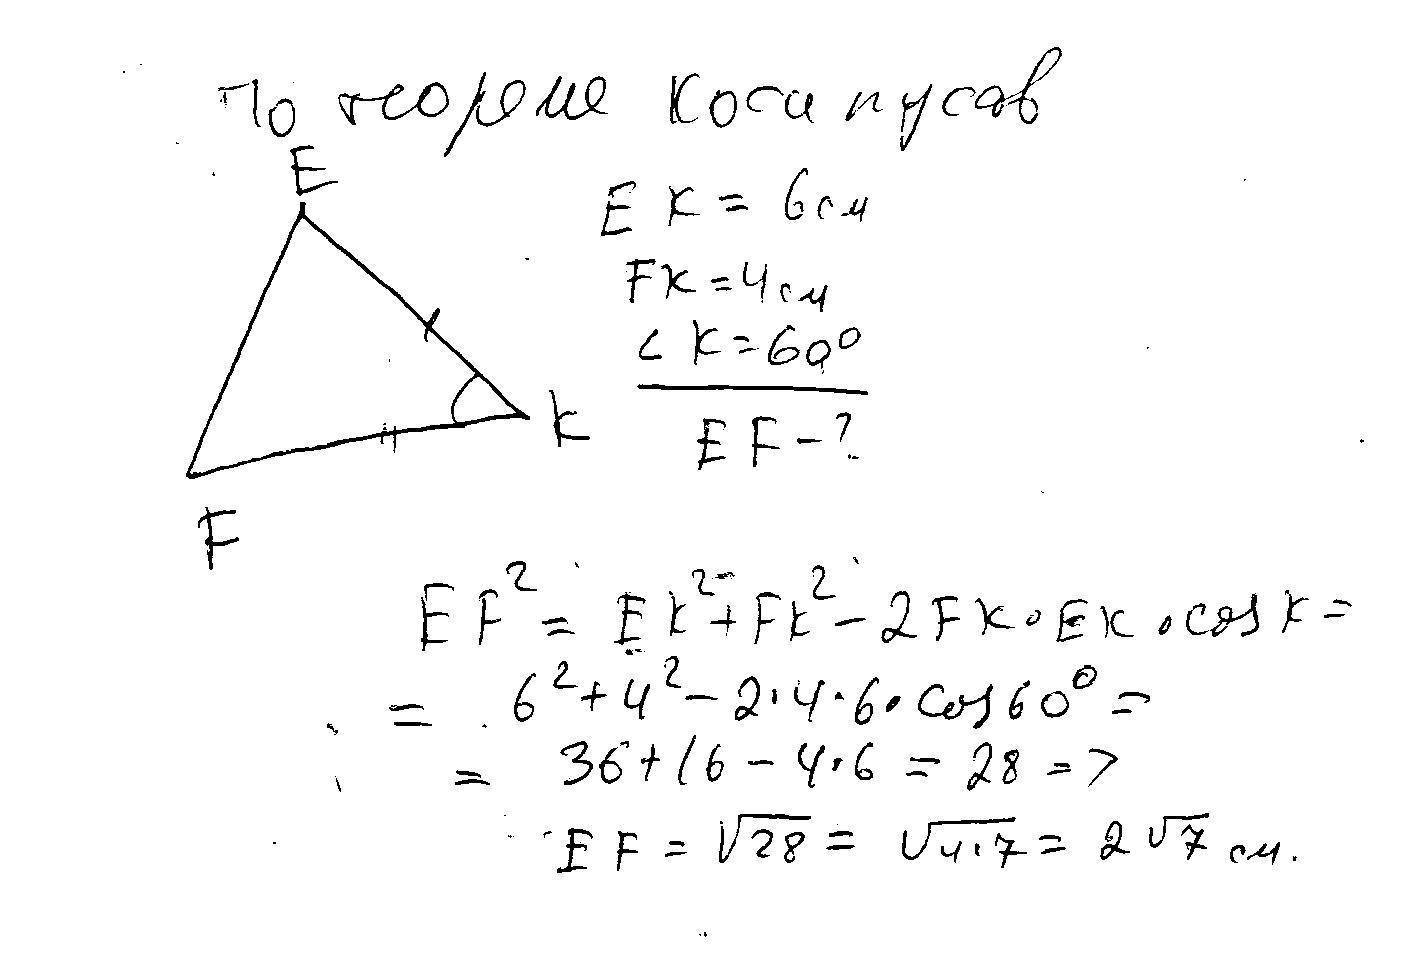 По теореме косинусов
E
EK = 6см
FK = 4см
∠K = 60°
K
EF - ?
F
EF² = EK² + FK² - 2FK · EK · cos K =
= 6² + 4² - 2·4·6·cos60° =
= 36 + 16 - 4·6 = 28 =>
EF = √28 = √4·7 = 2√7 см.